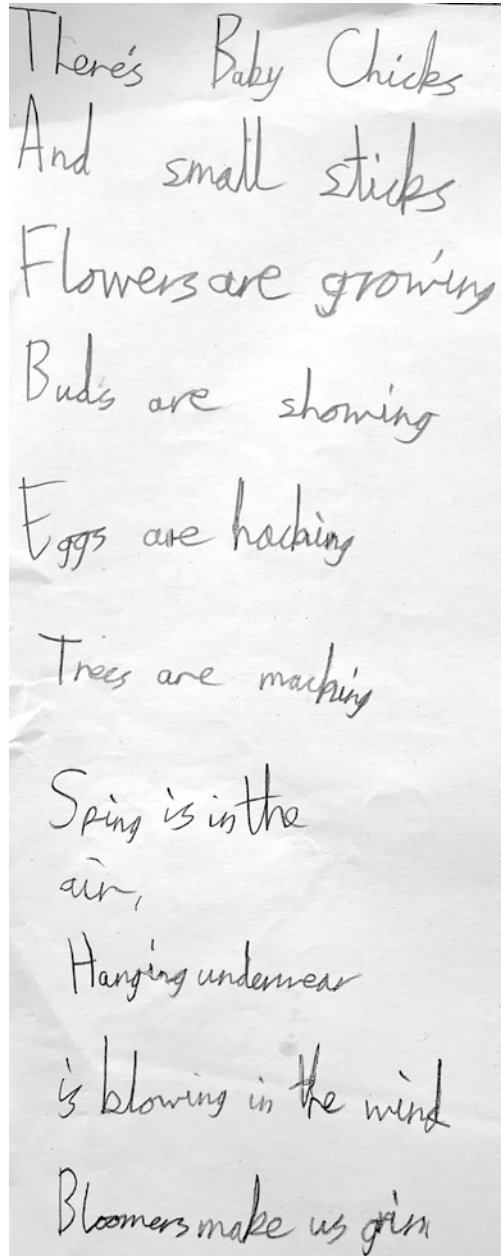 There's Baby Chicks
And small sticks
Flowers are growing
Buds are showing
Eggs are haching
Trees are maching
Sping is in the
air,
Hanging underwear
is blowing in the wind
Bloomers make us grin